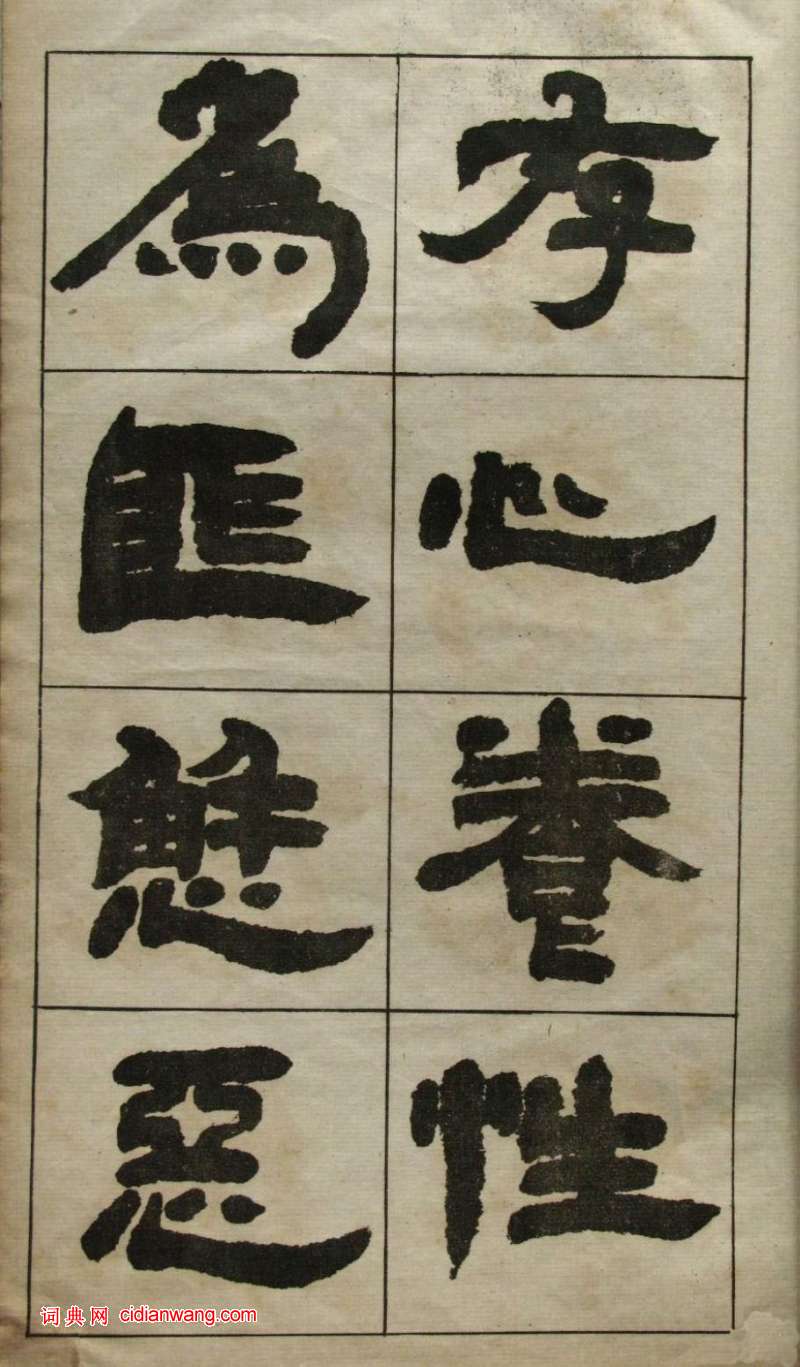 存心養性
為匪懈惡
词典网 cidianwang.com